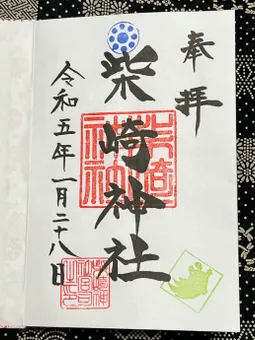 奉拝
柴崎神社
令和五年一月二十八日